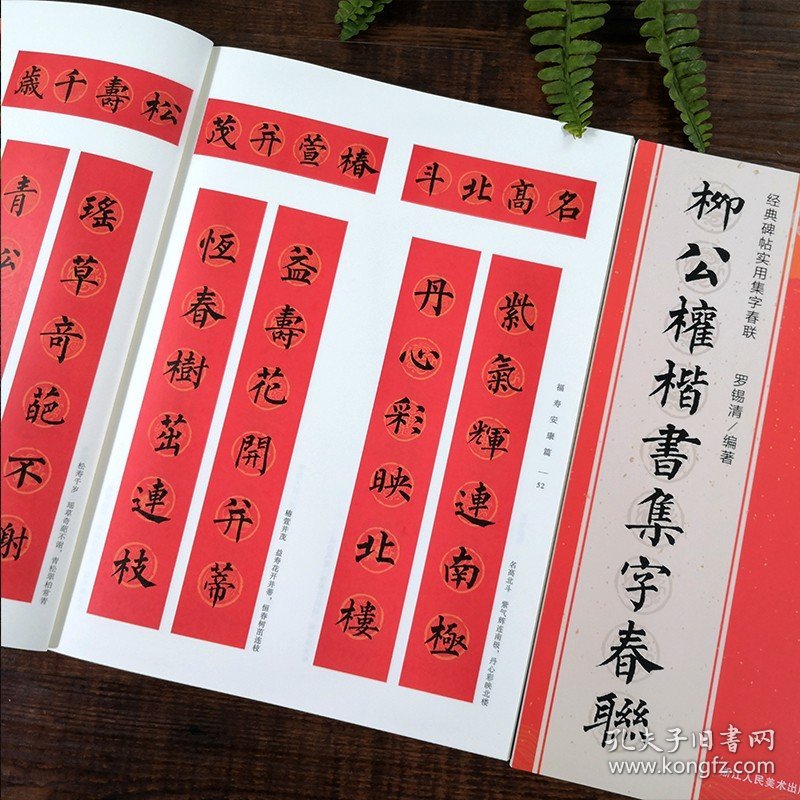 松壽千歲
瑤草奇葩不謝
青松
松寿千岁 瑶草奇葩不谢，青松翠柏常青
椿萱并茂
益壽花開并蒂
恆春樹茁連枝
椿萱并茂 益寿花开并蒂，恒春树茁连枝
名髙北斗
紫氣輝連南極
丹心彩映北樓
名高北斗 紫气辉连南极，丹心彩映北楼
福寿安康篇 — 52
经典碑帖实用集字春联
罗锡清/编著
柳公權楷書集字春聯
浙江人民美术出
孔夫子旧书网
www.kongfz.com